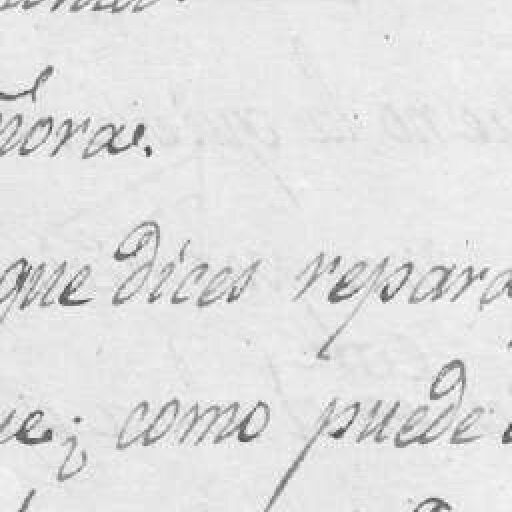 ñora.
que dices repara
ue; como puede